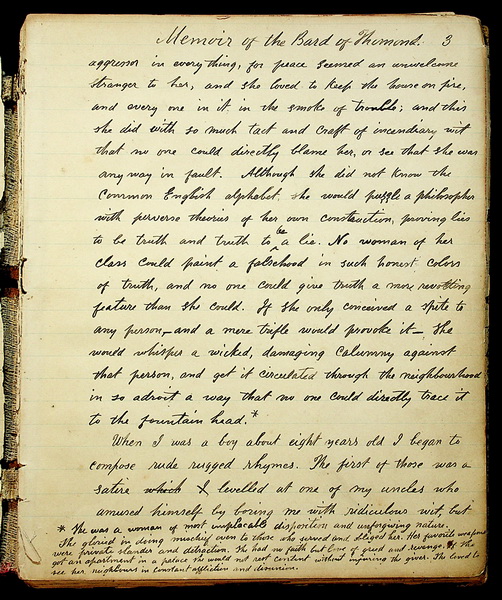 Memoir of the Bard of Thomond. 3
aggressor in everything, for peace seemed an unwelcome
stranger to her, and she loved to keep the house on fire,
and every one in it in the smoke of trouble; and this
she did with so much tact and craft of incendiary wit
that no one could directly blame her, or see that she was
any way in fault. Although she did not know the
Common English alphabet, she would puzzle a philosopher
with perverse theories of her own construction, proving lies
to be truth and truth to be a lie. No woman of her
class could paint a falsehood in such honest colors
of truth, and no one could give truth a more revolting
feature than she could. If she only conceived a spite to
any person,—and a mere trifle would provoke it— she
would whisper a wicked, damaging calumny against
that person, and get it circulated through the neighbourhood
in so adroit a way that no one could directly trace it
to the fountain head.*
When I was a boy about eight years old I began to
compose rude rugged rhymes. The first of those was a
satire which I levelled at one of my uncles who
amused himself by boring me with ridiculous wit, but
* She was a woman of most implacable disposition and unforgiving nature.
She gloried in doing mischief even to those who served and obliged her. Her favorite weapons
were private slander and detraction. She had no faith but love of greed and revenge. If she
got an apartment in a palace she would not rest content without injuring the giver. She loved to
see her neighbours in constant affliction and dissension.